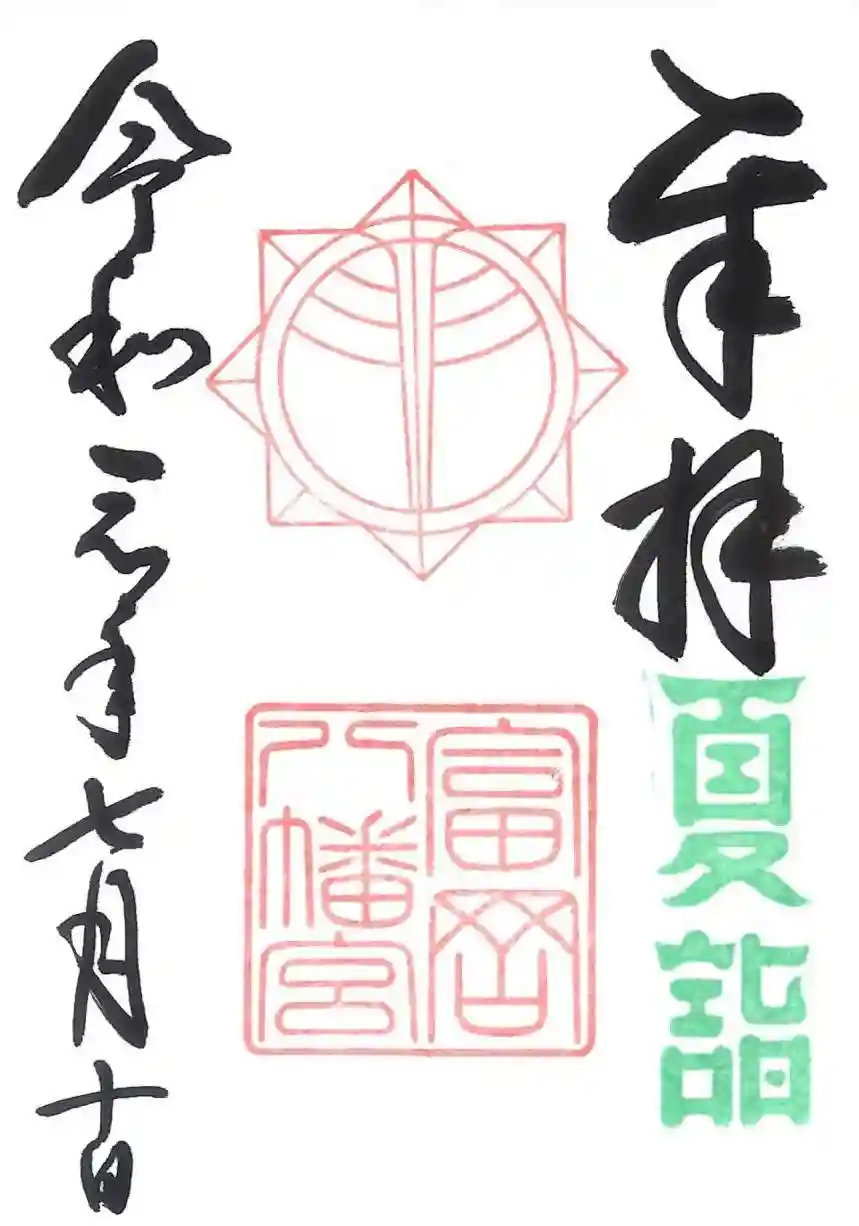 奉拝
夏詣
富岡
八幡宮
令和元年七月十日